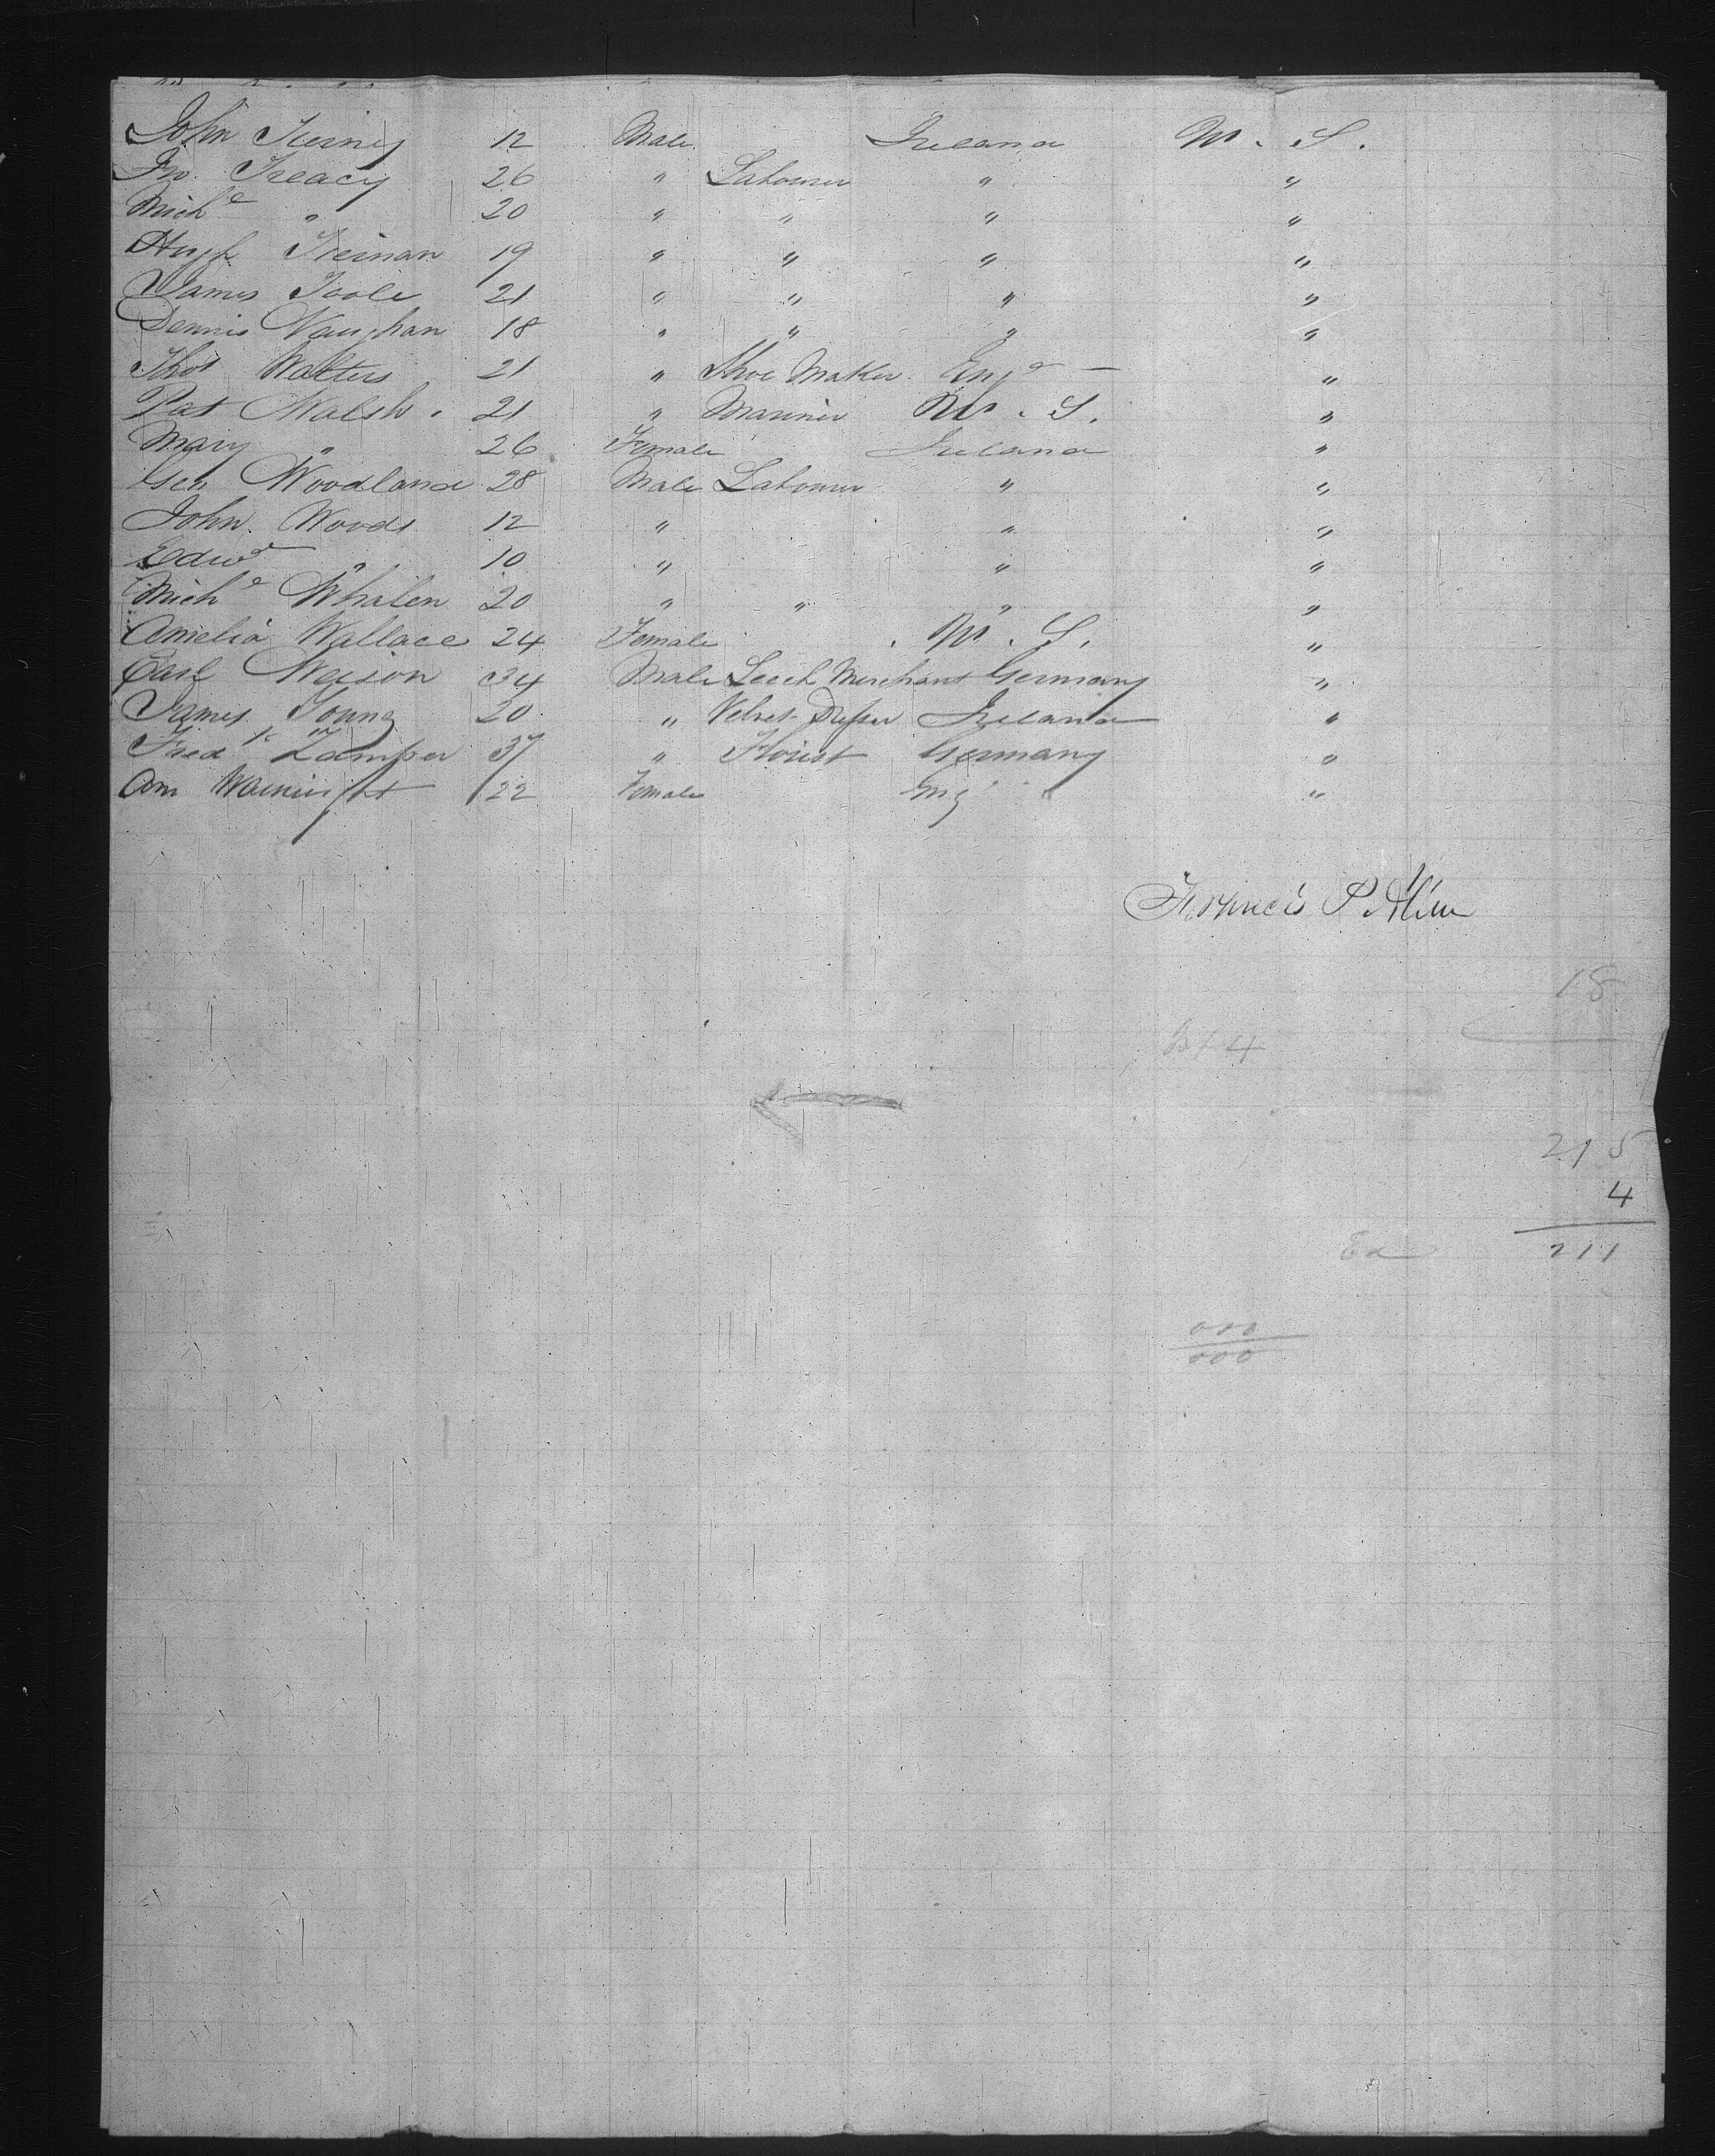 John Tierney 12 Male Ireland U. S.
Jno. Treacy 26 " Labourer " "
Mich.l " 20 " " " "
Hugh Tiernan 19 " " " "
James Toole 21 " " " "
Dennis Vaughan 18 " " " "
Thos Walters 21 " Shoe Maker Eng.d — "
Pat Walsh. 21 " Mariner U. S. "
Mary " 26 Female Ireland "
Geo Woodland 28 Male Labourer " "
John. Woods 12 " " "
Edwd " 10 " " "
Mich.l Whalen 20 " " " "
Amelia Wallace 24 Female U. S. "
Carl 34 Male Leech Merchant Germany "
James Young 20 " Velvet Dresser Ireland "
Fredk Zamper 37 " Florist Germany "
Ann Wainright 22 Female Eng "
Francis P. Allen
18
4
215
4
211
000
000